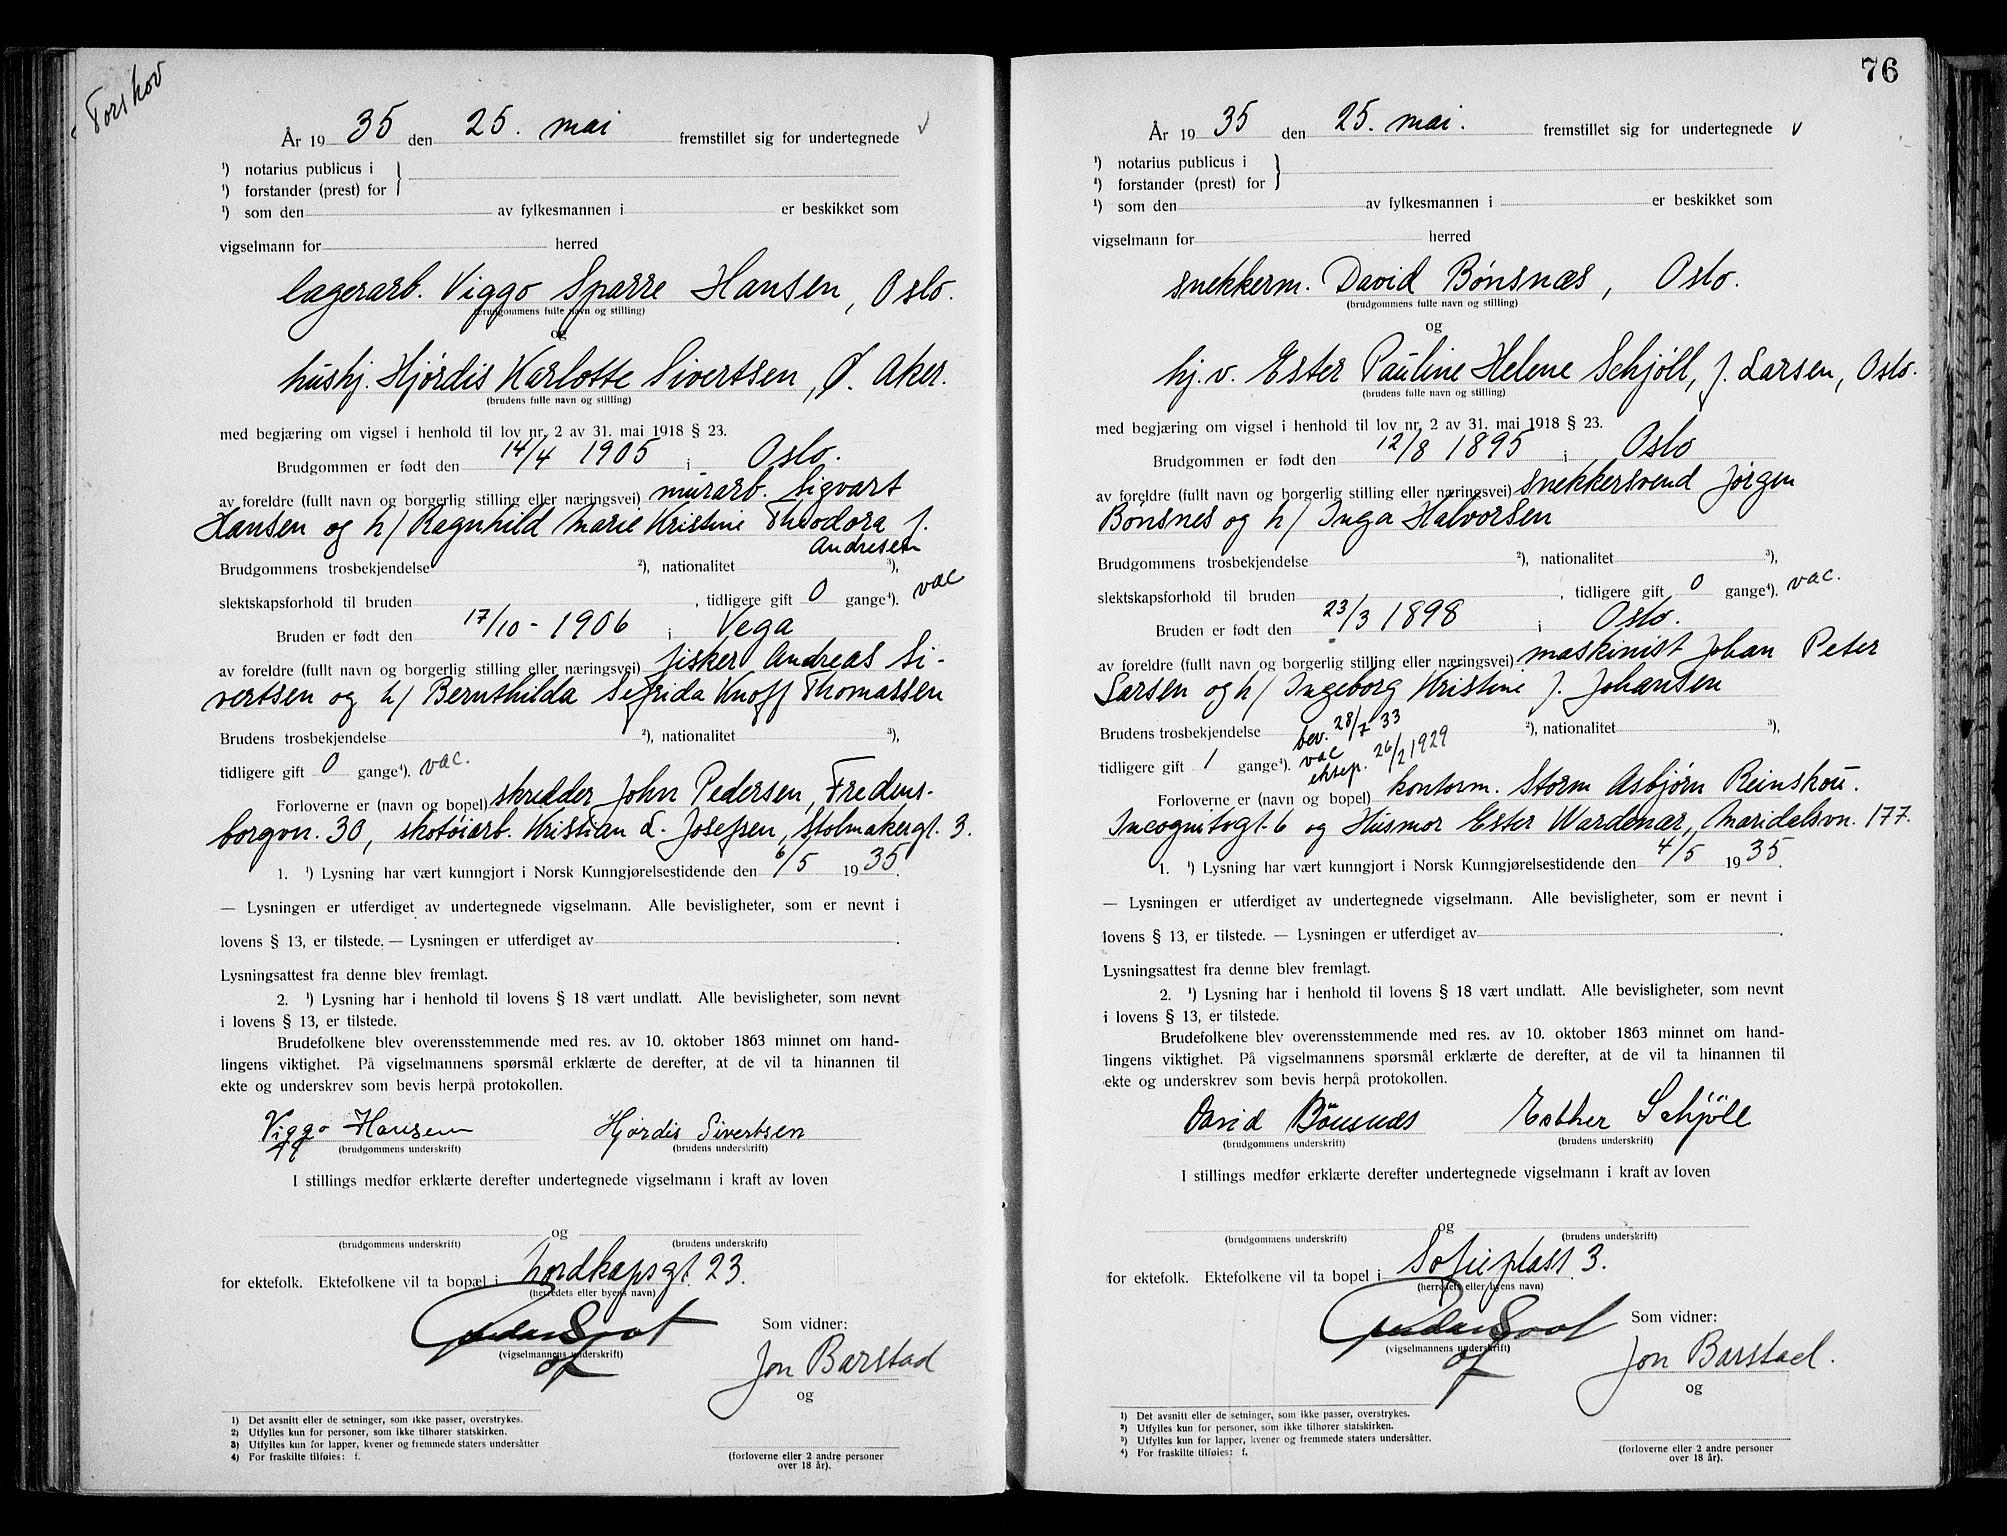 Torshov
År 19 35 den 25. mai fremstillet sig for undertegnede v
¹) notarius publicus i
¹) forstander (prest) for
¹) som den av fylkesmannen i er beskikket som
vigselmann for herred
lagerarb. Viggo Sparre Hansen, Oslo.
(brudgommens fulle navn og stilling)
og
hushj. Hjørdis Karlotte Sivertsen, Ø. Aker.
(brudens fulle navn og stilling)
med begjæring om vigsel i henhold til lov nr. 2 av 31. mai 1918 § 23.
Brudgommen er født den 14/4 1905 i Oslo.
av foreldre (fullt navn og borgerlig stilling eller næringsvei) murarb. Sigvart
Hansen og h/ Ragnhild Marie Kristine Theodora f.
Andresen
Brudgommens trosbekjendelse ²), nationalitet ³),
slektskapsforhold til bruden , tidligere gift 0 gange⁴). vac
Bruden er født den 17/10 - 1906 i Vega
av foreldre (fullt navn og borgerlig stilling eller næringsvei) fisker Andreas Si-
vertsen og h/ Bernthilda Sefrida Knoff Thomassen
Brudens trosbekjendelse ²), nationalitet ³),
tidligere gift 0 gange⁴). vac.
Forloverne er (navn og bopel) skredder John Pedersen, Fredens-
borgvn. 30, skotøiarb. Kristian L. Josefsen, Stolmakergt. 3.
1. ¹) Lysning har vært kunngjort i Norsk Kunngjørelsestidende den 6/5 1935.
— Lysningen er utferdiget av undertegnede vigselmann. Alle bevisligheter, som er nevnt i
lovens § 13, er tilstede. — Lysningen er utferdiget av .
Lysningsattest fra denne blev fremlagt.
2. ¹) Lysning har i henhold til lovens § 18 vært undlatt. Alle bevisligheter, som nevnt
i lovens § 13, er tilstede.
Brudefolkene blev overensstemmende med res. av 10. oktober 1863 minnet om hand-
lingens viktighet. På vigselmannens spørsmål erklærte de derefter, at de vil ta hinannen til
ekte og underskrev som bevis herpå protokollen.
Viggo Hansen Hjørdis Sivertsen
(brudgommens underskrift) (brudens underskrift)
I stillings medfør erklærte derefter undertegnede vigselmann i kraft av loven
og
(brudgommens underskrift) (brudens underskrift)
for ektefolk. Ektefolkene vil ta bopæl i Nordkapsgt. 23.
(herredets eller byens navn)
Som vidner:
(vigselmannens underskrift)
Jon Barstad
og
1) Det avsnitt eller de setninger, som ikke passer, overstrykes.
2) Utfylles kun for personer, som ikke tilhører statskirken.
3) Utfylles kun for lapper, kvener og fremmede staters undersåtter
4) For fraskilte tilføies: f.
(forloverne eller 2 andre personer
over 18 år).
76
År 19 35 den 25. mai. fremstillet sig for undertegnede v
¹) notarius publicus i
¹) forstander (prest) for
¹) som den av fylkesmannen i er beskikket som
vigselmann for herred
snekkerm. David Bønsnæs, Oslo.
(brudgommens fulle navn og stilling)
og
hj. v. Ester Pauline Helene Schjöll, f. Larsen, Oslo.
(brudens fulle navn og stilling)
med begjæring om vigsel i henhold til lov nr. 2 av 31. mai 1918 § 23.
Brudgommen er født den 12/8 1895 i Oslo
av foreldre (fullt navn og borgerlig stilling eller næringsvei) snekkersvend Jørgen
Bønsnes og h/ Inga Halvorsen
Brudgommens trosbekjendelse ²), nationalitet ³),
slektskapsforhold til bruden , tidligere gift 0 gange⁴). vac.
Bruden er født den 23/3 1898 i Oslo.
av foreldre (fullt navn og borgerlig stilling eller næringsvei) maskinist Johan Peter
Larsen og h/ Ingeborg Kristine f. Johansen
Brudens trosbekjendelse bev. 28/7 33 ²), nationalitet ³),
tidligere gift 1 gange⁴). vac eksep. 26/2 1929
Forloverne er (navn og bopel) kontorm. Storm Asbjørn Reinskou.
Incognitogt. 6 og Husmor Ester Wardenær, Maridalsvn. 177.
1. ¹) Lysning har vært kunngjort i Norsk Kunngjørelsestidende den 4/5 1935.
— Lysningen er utferdiget av undertegnede vigselmann. Alle bevisligheter, som er nevnt i
lovens § 13, er tilstede. — Lysningen er utferdiget av .
Lysningsattest fra denne blev fremlagt.
2. ¹) Lysning har i henhold til lovens § 18 vært undlatt. Alle bevisligheter, som nevnt
i lovens § 13, er tilstede.
Brudefolkene blev overensstemmende med res. av 10. oktober 1863 minnet om hand-
lingens viktighet. På vigselmannens spørsmål erklærte de derefter, at de vil ta hinannen til
ekte og underskrev som bevis herpå protokollen.
David Bönsnæs Esther Schjöll
(brudgommens underskrift) (brudens underskrift)
I stillings medfør erklærte derefter undertegnede vigselmann i kraft av loven
og
(brudgommens underskrift) (brudens underskrift)
for ektefolk. Ektefolkene vil ta bopel i Sofieplass 3.
(herredets eller byens navn)
Som vidner:
(vigselmannens underskrift)
Jon Barstad.
og
1) Det avsnitt eller de setninger, som ikke passer, overstrykes.
2) Utfylles kun for personer, som ikke tilhører statskirken.
3) Utfylles kun for lapper, kvener og fremmede staters undersåtter.
4) For fraskilte tilføies: f.
(forloverne eller 2 andre personer
over 18 år).